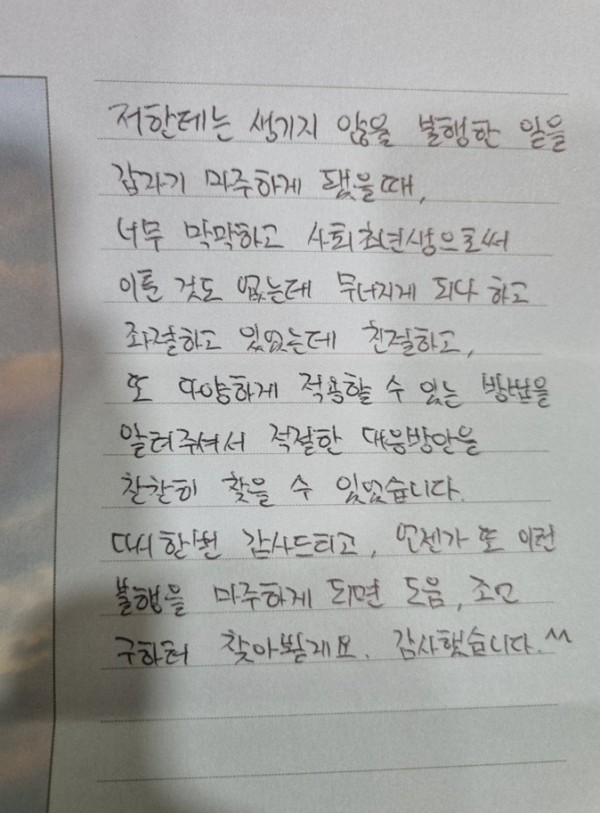 저한테는 생기지 않을 불행한 일을
갑자기 마주하게 됐을때,
너무 막막하고 사회초년생으로써
이룬 것도 없는데 무너지게 되다 하고
좌절하고 있었는데 친절하고,
또 다양하게 적용할 수 있는 방법을
알려주셔서 적절한 대응방안을
찬찬히 찾을 수 있었습니다.
다시한번 감사드리고, 언젠가 또 이런
불행을 마주하게 되면 도움, 조언
구하러 찾아뵐게요. 감사했습니다.^^